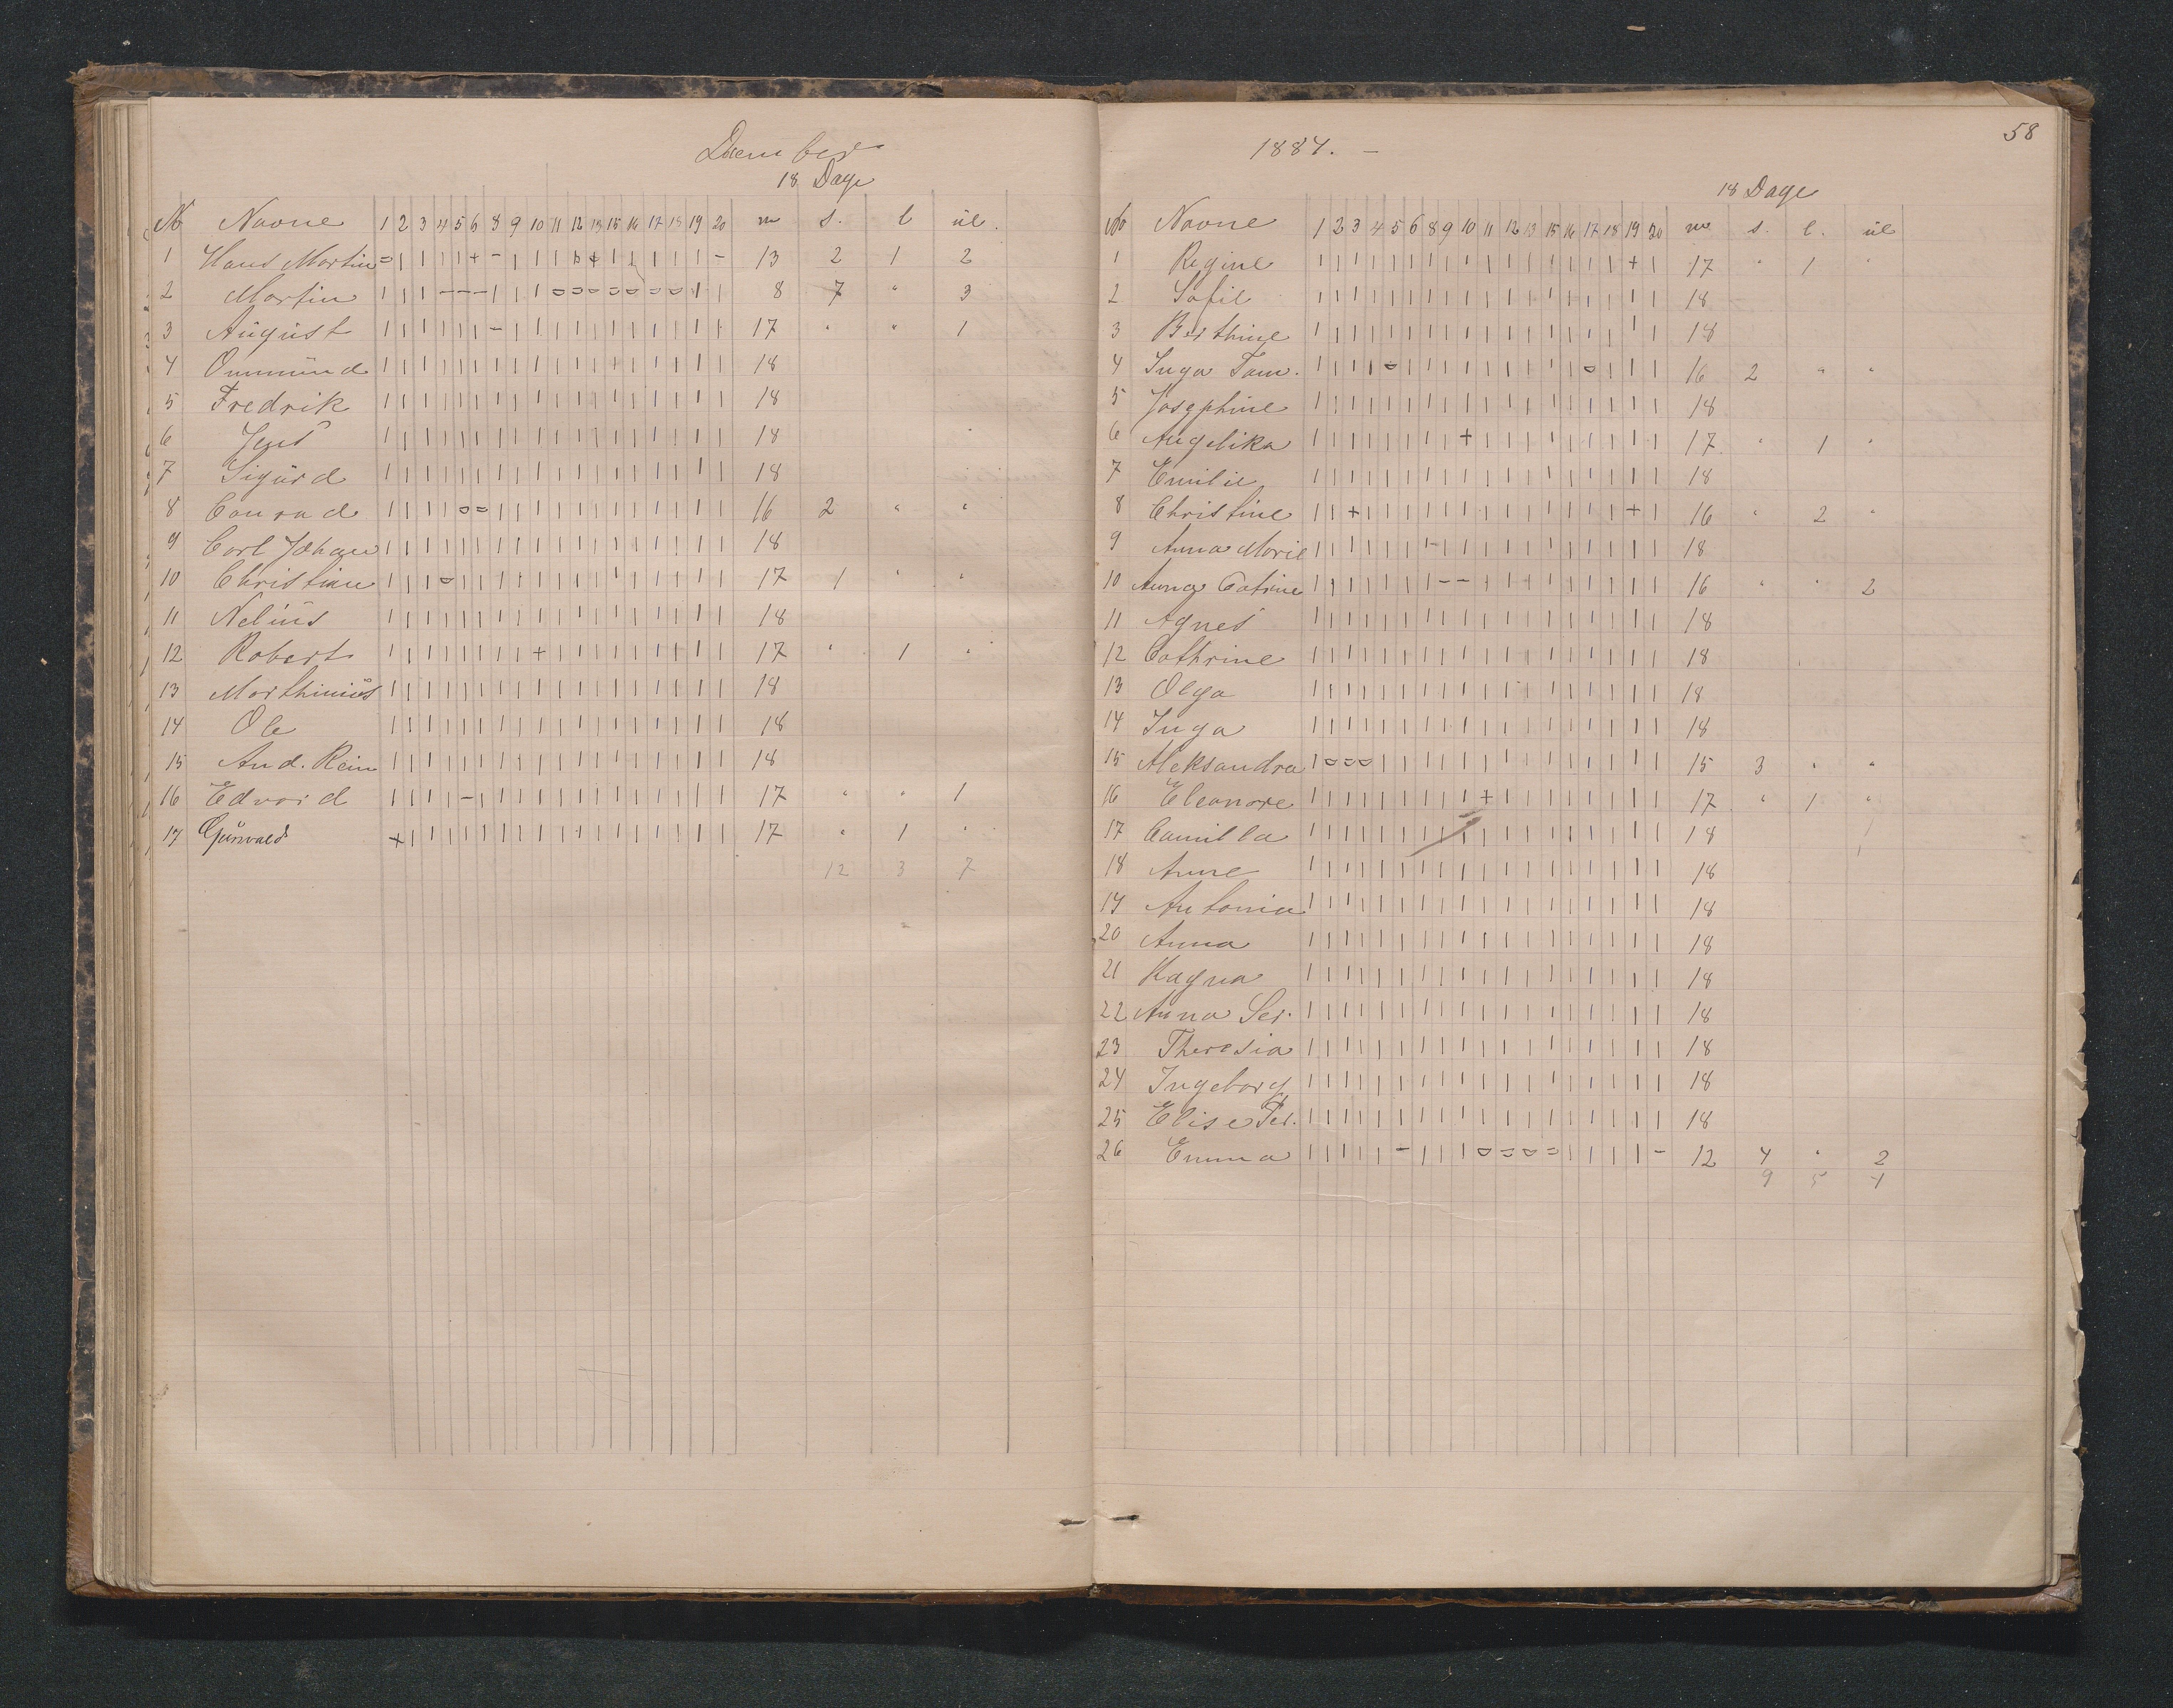 December
18 Dage
№ Navne 1 2 3 4 5 6 8 9 10 11 12 13 15 16 17 18 19 20 m s. l ul.
1 Hans Martin = | | | | + - | | | | | | | | | - 13 2 1 2
2 Martin | | | - - - | | | o o o o o o o | | 8 7 " 3
3 August | | | | | | - | | | | | | | | | | | 17 " " 1
4 Ommund | | | | | | | | | | | | | | | | | | 18
5 Fredrik | | | | | | | | | | | | | | | | | | 18
6 Jens | | | | | | | | | | | | | | | | | | 18
7 Sigurd | | | | | | | | | | | | | | | | | | 18
8 Conrad | | | | o = | | | | | | | | | | | | 16 2 " "
9 Carl Johan | | | | | | | | | | | | | | | | | | 18
10 Christian | | | o | | | | | | | | | | | | | | 17 1 " "
11 Nelius | | | | | | | | | | | | | | | | | | 18
12 Robert | | | | | | | | + | | | | | | | | | 17 " 1 "
13 Marthinius | | | | | | | | | | | | | | | | | | 18
14 Ole | | | | | | | | | | | | | | | | | | 18
15 And. Rein | | | | | | | | | | | | | | | | | | 18
16 Edvard | | | | - | | | | | | | | | | | | | 17 " " 1
17 Gunvald + | | | | | | | | | | | | | | | | | 17 " 1 "
12 3 7
58
1884. -
18 Dage
No Navne 1 2 3 4 5 6 8 9 10 11 12 13 15 16 17 18 19 20 m s. l. ul
1 Regine | | | | | | | | | | | | | | | | + | 17 " 1 "
2 Sofie | | | | | | | | | | | | | | | | | | 18
3 Berthine | | | | | | | | | | | | | | | | | | 18
4 Inga Tom. | | | | o | | | | | | | | | o | | | 16 2 " "
5 Josephine | | | | | | | | | | | | | | | | | | 18
6 Angelika | | | | | | | | + | | | | | | | | | 17 " 1 "
7 Emilie | | | | | | | | | | | | | | | | | | 18
8 Christine | | + | | | | | | | | | | | | | + | 16 " 2 "
9 Anna Marie | | | | | | | | | | | | | | | | | | 18
10 Anna Catrine | | | | | | - - | | | | | | | | | | 16 " " 2
11 Agnes | | | | | | | | | | | | | | | | | | 18
12 Cathrine | | | | | | | | | | | | | | | | | | 18
13 Olga | | | | | | | | | | | | | | | | | | 18
14 Inga | | | | | | | | | | | | | | | | | | 18
15 Aleksandra | o o o | | | | | | | | | | | | | | 15 3 " "
16 Eleanore | | | | | | | | | + | | | | | | | | 17 " 1 "
17 Camilla | | | | | | | | | | | | | | | | | | 18
18 Anne | | | | | | | | | | | | | | | | | | 18
19 Antonia | | | | | | | | | | | | | | | | | | 18
20 Anna | | | | | | | | | | | | | | | | | | 18
21 Ragna | | | | | | | | | | | | | | | | | | 18
22 Anna Ser. | | | | | | | | | | | | | | | | | | 18
23 Theresia | | | | | | | | | | | | | | | | | | 18
24 Ingeborg | | | | | | | | | | | | | | | | | | 18
25 Elise Pet. | | | | | | | | | | | | | | | | | | 18
26 Emma | | | | | - | | | o = o = | | | | - 12 4 " 2
9 5 4